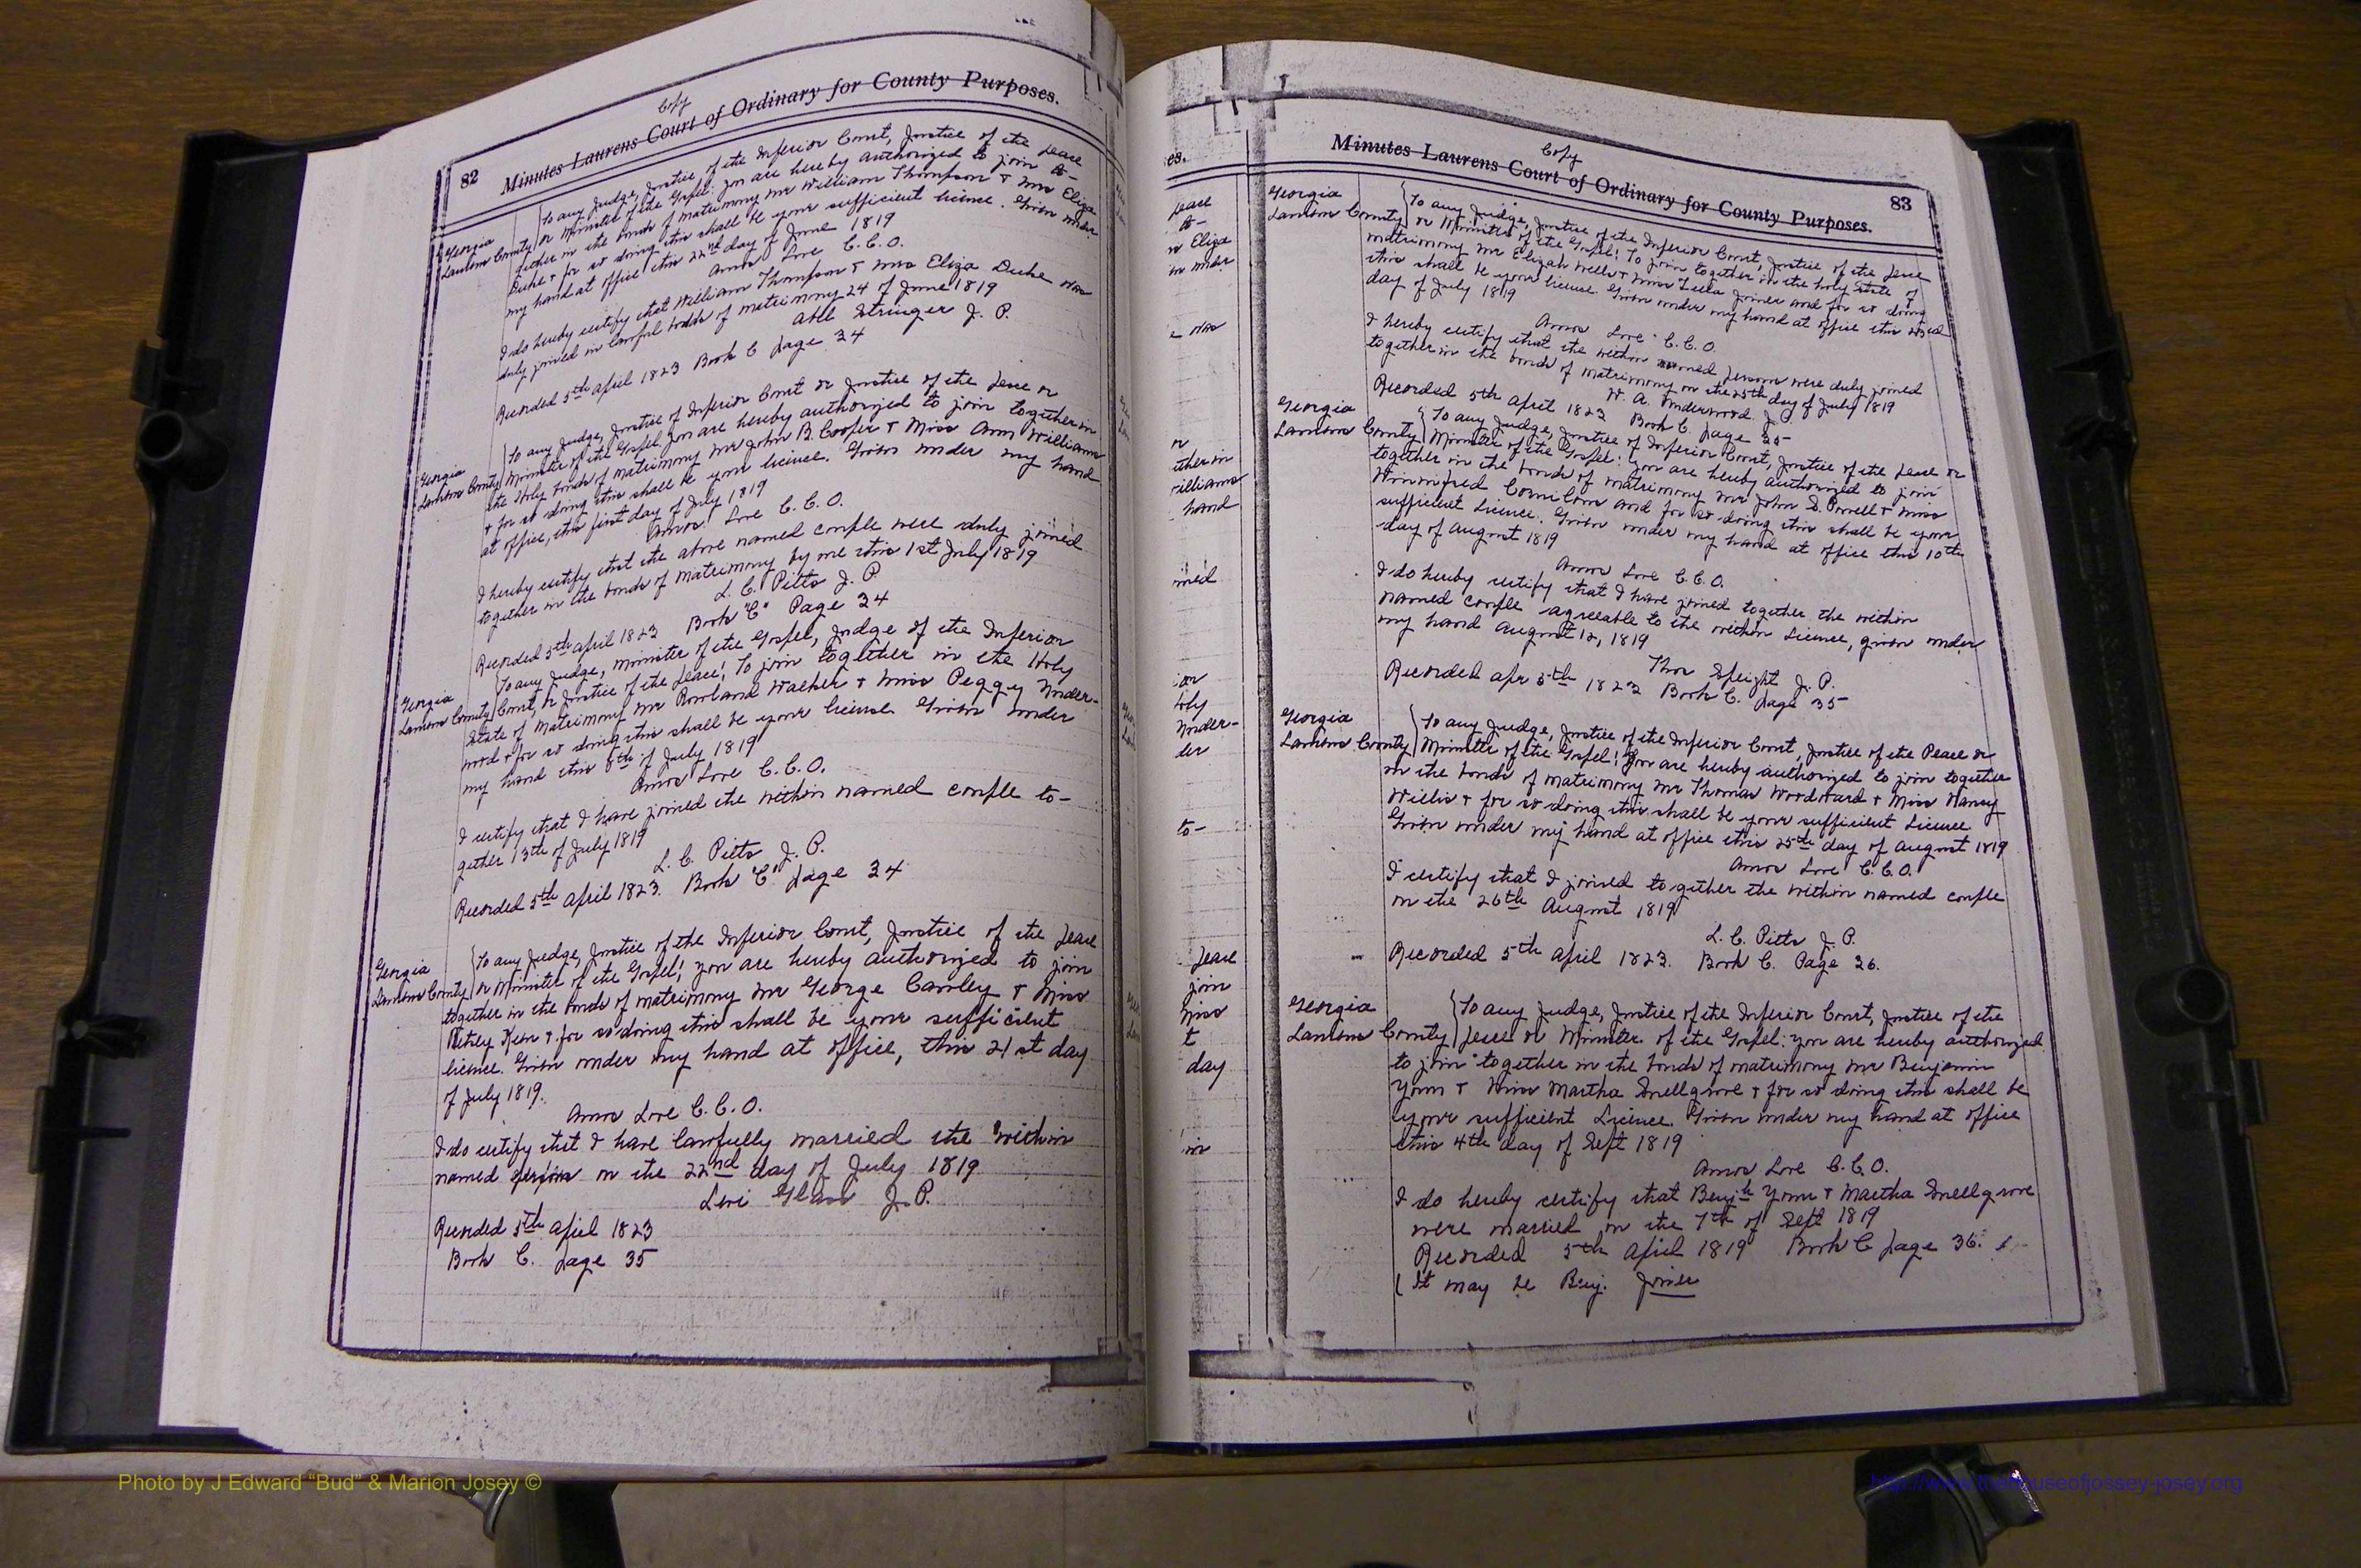 Copy
82 Minutes Laurens Court of Ordinary for County Purposes.
Georgia
Laurens County
To any Judge, Justice of the Inferior Court, Justice of the Peace
or Minister of the Gospel: you are hereby authorized to join to-
gether in the bonds of matrimony Mr William Thompson & Mrs Eliza
Duke & for so doing this shall be your sufficient licence. Given under
my hand at office this 22nd day of June 1819
Amos Love C.C.O.
I do hereby certify that William Thompson & Mrs Eliza Duke was
duly joined in lawful bonds of matrimony 24 of June 1819
Able Stringer J. P.
Recorded 5th April 1823 Book C Page 34
Georgia
Laurens County
To any Judge, Justice of Inferior Court or Justice of the Peace or
Minister of the Gospel you are hereby authorized to join together in
the Holy bonds of matrimony Mr John B. Cooper & Miss Ann Williams
& for so doing this shall be your licence. Given under my hand
at office, this first day of July 1819
Amos Love C.C.O.
I hereby certify that the above named couple were duly joined
together in the bonds of matrimony by me this 1st July 1819
L. C. Pitts J. P.
Recorded 5th April 1823 Book "C" Page 34
Georgia
Laurens County
To any Judge, Minister of the Gospel, Judge of the Inferior
Court, or Justice of the Peace! To join together in the Holy
State of Matrimony Mr Rowland Walker & Miss Peggy Under-
wood & for so doing this shall be your license Given under
my hand this 8th of July 1819
Amos Love C.C.O.
I certify that I have joined the within named couple to-
gether 13th of July 1819
L. C. Pitts J. P.
Recorded 5th April 1823. Book "C" Page 34
Georgia
Laurens County
To any Judge, Justice of the Inferior Court, Justice of the Peace
or Minister of the Gospel; you are hereby authorized to join
together in the bonds of matrimony Mr George Cawley & Miss
Keen & for so doing this shall be your sufficient
licence. Given under my hand at office, this 21st day
of July 1819.
Amos Love C.C.O.
I do certify that I have lawfully married the within
named person on the 22nd day of July 1819.
Levi Glass J.P.
Recorded 5th April 1823
Book C. Page 35
es.
Peace
to-
s Eliza
n under
e was
or
ether in
illiams
hand
ined
ior
Holy
Under-
der
to-
Peace
join
Miss
t
day
in
Copy
Minutes Laurens Court of Ordinary for County Purposes. 83
Georgia
Laurens County
To any Judge, Justice of the Inferior Court, Justice of the Peace
or Minister of the Gospel! To join together in the holy state of
matrimony Mr Elizah Wells & Miss Joiner and for so doing
this shall be your license. Given under my hand at office this
day of July 1819
Amos Love C.C.O.
I hereby certify that the within named persons were duly joined
together in the bonds of matrimony on the 25th day of July 1819
W. A. Underwood J. P.
Recorded 5th April 1823 Book C. Page 35
Georgia
Laurens County
To any Judge, Justice of Inferior Court, Justice of the Peace or
Minister of the Gospel: you are hereby authorized to join
together in the bonds of matrimony Mr John S. Powell & Miss
Winnifred and for so doing this shall be your
sufficient Licence. Given under my hand at office this 10th
day of August 1819
Amos Love C.C.O.
I do hereby certify that I have joined together the within
named couple agreeable to the within Licence, given under
my hand August 12, 1819
Thos Speight J. P.
Recorded Apr 5th 1823 Book C. Page 35
Georgia
Laurens County
To any Judge, Justice of the Inferior Court, Justice of the Peace or
Minister of the Gospel! You are hereby authorized to join together
in the bonds of matrimony Mr Thomas Woodward & Miss Nancy
Willis & for so doing this shall be your sufficient Licence
Given under my hand at office this 25th day of August 1819
Amos Love C.C.O.
I certify that I joined together the within named couple
on the 26th August 1819
L. C. Pitts J. P.
Recorded 5th April 1823. Book C. Page 36.
Georgia
Laurens County
To any Judge, Justice of the Inferior Court, Justice of the
Peace or Minister of the Gospel: you are hereby authorized
to join together in the bonds of matrimony Mr Benjamin
Yonn & Miss Martha Snellgrove & for so doing this shall be
your sufficient Licence. Given under my hand at office
this 4th day of Sept 1819
Amos Love C.C.O.
I do hereby certify that Benjn Yonn & Martha Snellgrove
were married on the 7th of Sept 1819
Recorded 5th April 1819 Book C Page 36.
( It may be Benj. Joiner
Photo by J Edward "Bud" & Marion Josey ©
http://www.thehouseofjossey-josey.org